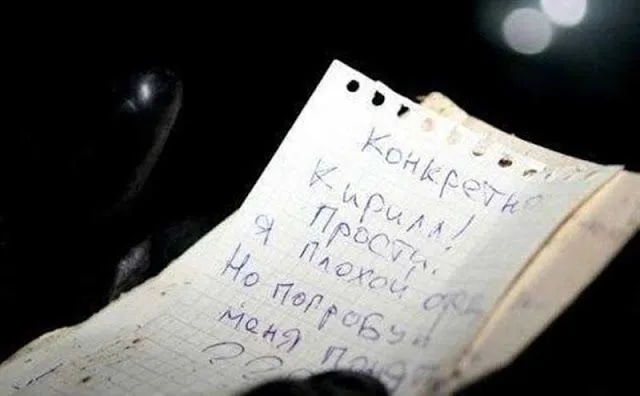 Конкретно
Кирилл!
Прости.
Я плохой
Но попробуй
меня
???